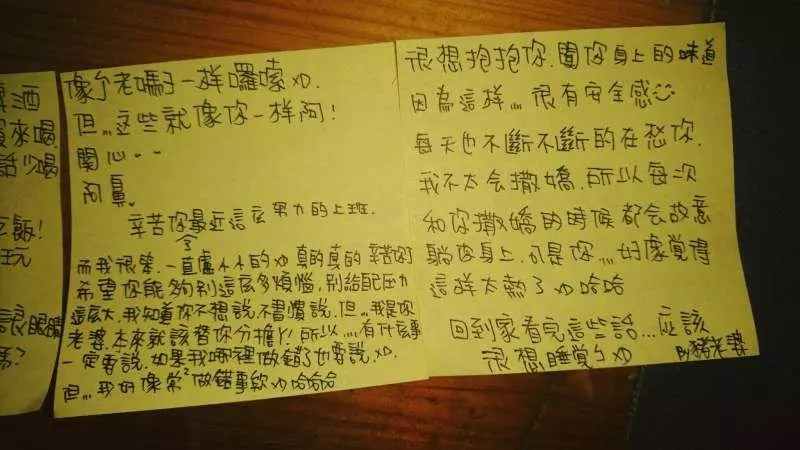 酒
來喝
話少喝
飯!
玩
眼睛
嗎?
像个老嗎子一样囉嗦XD.
但,,,這些就像你一样阿!
關心..
阿鼻.
辛苦你最近這么努力的上班.
而我很笨.一直盧小小的XD 真的真的 辛苦你了
希望你能夠別這麼多煩惱,別給自己压力
這么大.我知道你不想說,不習慣說,但,,,我是你
老婆.本來就該替你分擔ㄚ!所以,,,,有什么事
一定要說.如果我哪裡做錯了也要說,XD.
但,,,我好像常²做錯事欸XD哈哈哈
很想抱抱你.聞你身上的味道
因為這样,,,,很有安全感
每天也不斷不斷的在愁你.
我不太会撒嬌.所以每次
和你撒嬌的時候都会故意
躺你身上.可是你,,,,好像覺得
這样太熱了XD哈哈
回到家看完這些話...应該
很想睡覺ㄅXD
By豬老婆